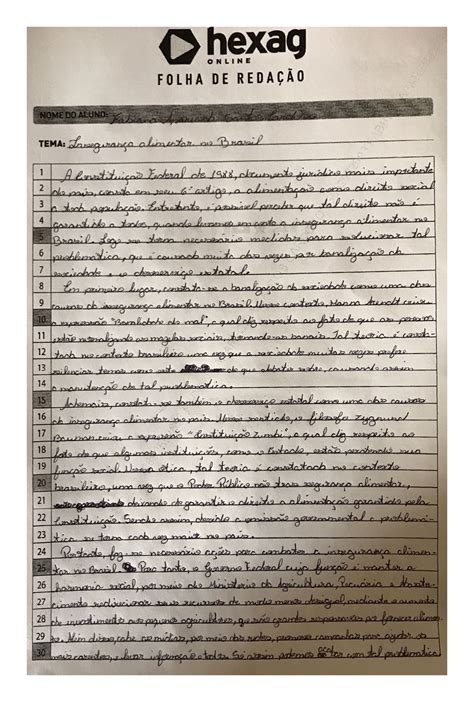 hexag
ONLINE
FOLHA DE REDAÇÃO
NOME DO ALUNO:
TEMA: Insegurança alimentar no Brasil
1 A Constituição Federal de 1988, documento jurídico mais importante
2 do país, consta em seu 6º artigo, a alimentação como direito social
3 a toda população. Entretanto, é possível perceber que tal direito não é
4 garantido a todos, quando levamos em conta a insegurança alimentar no
5 Brasil. Logo se torna necessário medidas para solucionar tal
6 problemática, que é causada muitas das vezes por banalização da
7 sociedade e o desserviço estatal.
8 Em primeiro lugar, constata-se a banalização da sociedade como uma das
9 causas da insegurança alimentar no Brasil. Nesse contexto, Hannah Arendt criou
10 a expressão "Banalidade do mal", a qual diz respeito ao fato de que as pessoas
11 estão normalizando as mazelas sociais, tornando-as banais. Tal teoria é consta-
12 tada no contexto brasileiro uma vez que a sociedade muitas vezes prefere
13 silenciar temas como este do que debater sobre, causando assim
14 a manutenção de tal problemática.
15 Ademais, constata-se também o desserviço estatal como uma das causas
16 da insegurança alimentar no país. Nesse sentido, o filósofo Zygmund
17 Bauman criou a expressão "Instituição Zumbi", a qual diz respeito ao
18 fato de que algumas instituições, como o Estado, estão perdendo sua
19 função social. Nessa ótica, tal teoria é constatada no contexto
20 brasileiro, uma vez que o Poder Público não traz segurança alimentar,
21 deixando de garantir o direito a alimentação garantido pela
22 Constituição. Sendo assim, devido a omissão governamental o problemá-
23 tica se torna cada vez maior no país.
24 Portanto faz-se necessário ações para combater a insegurança alimen-
25 tar no Brasil. Para tanto, o Governo Federal cuja função é manter a
26 harmonia social, por meio do Ministério da Agricultura Pecuária e Abaste-
27 cimento redirecionar seus recursos de modo menos desigual, mediante o aumento
28 de investimento aos pequenos agricultores, que são grandes responsáveis por fornecer alimen-
29 tos. Além disso, cabe as mídias, por meio das redes, promover campanhas para ajudar os
30 mais carentes, e levar informação a todos. Só assim podemos com tal problemática.